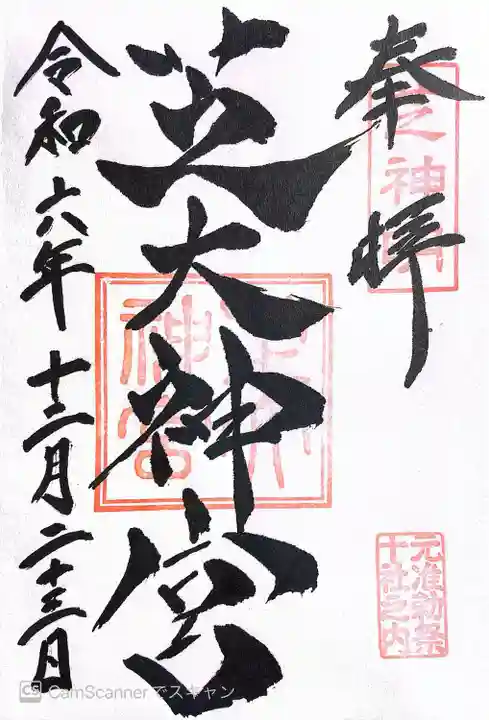 奉拝
芝大神宮
令和六年十二月二十三日
元准勅祭
十社之内
CS CamScannerでスキャン